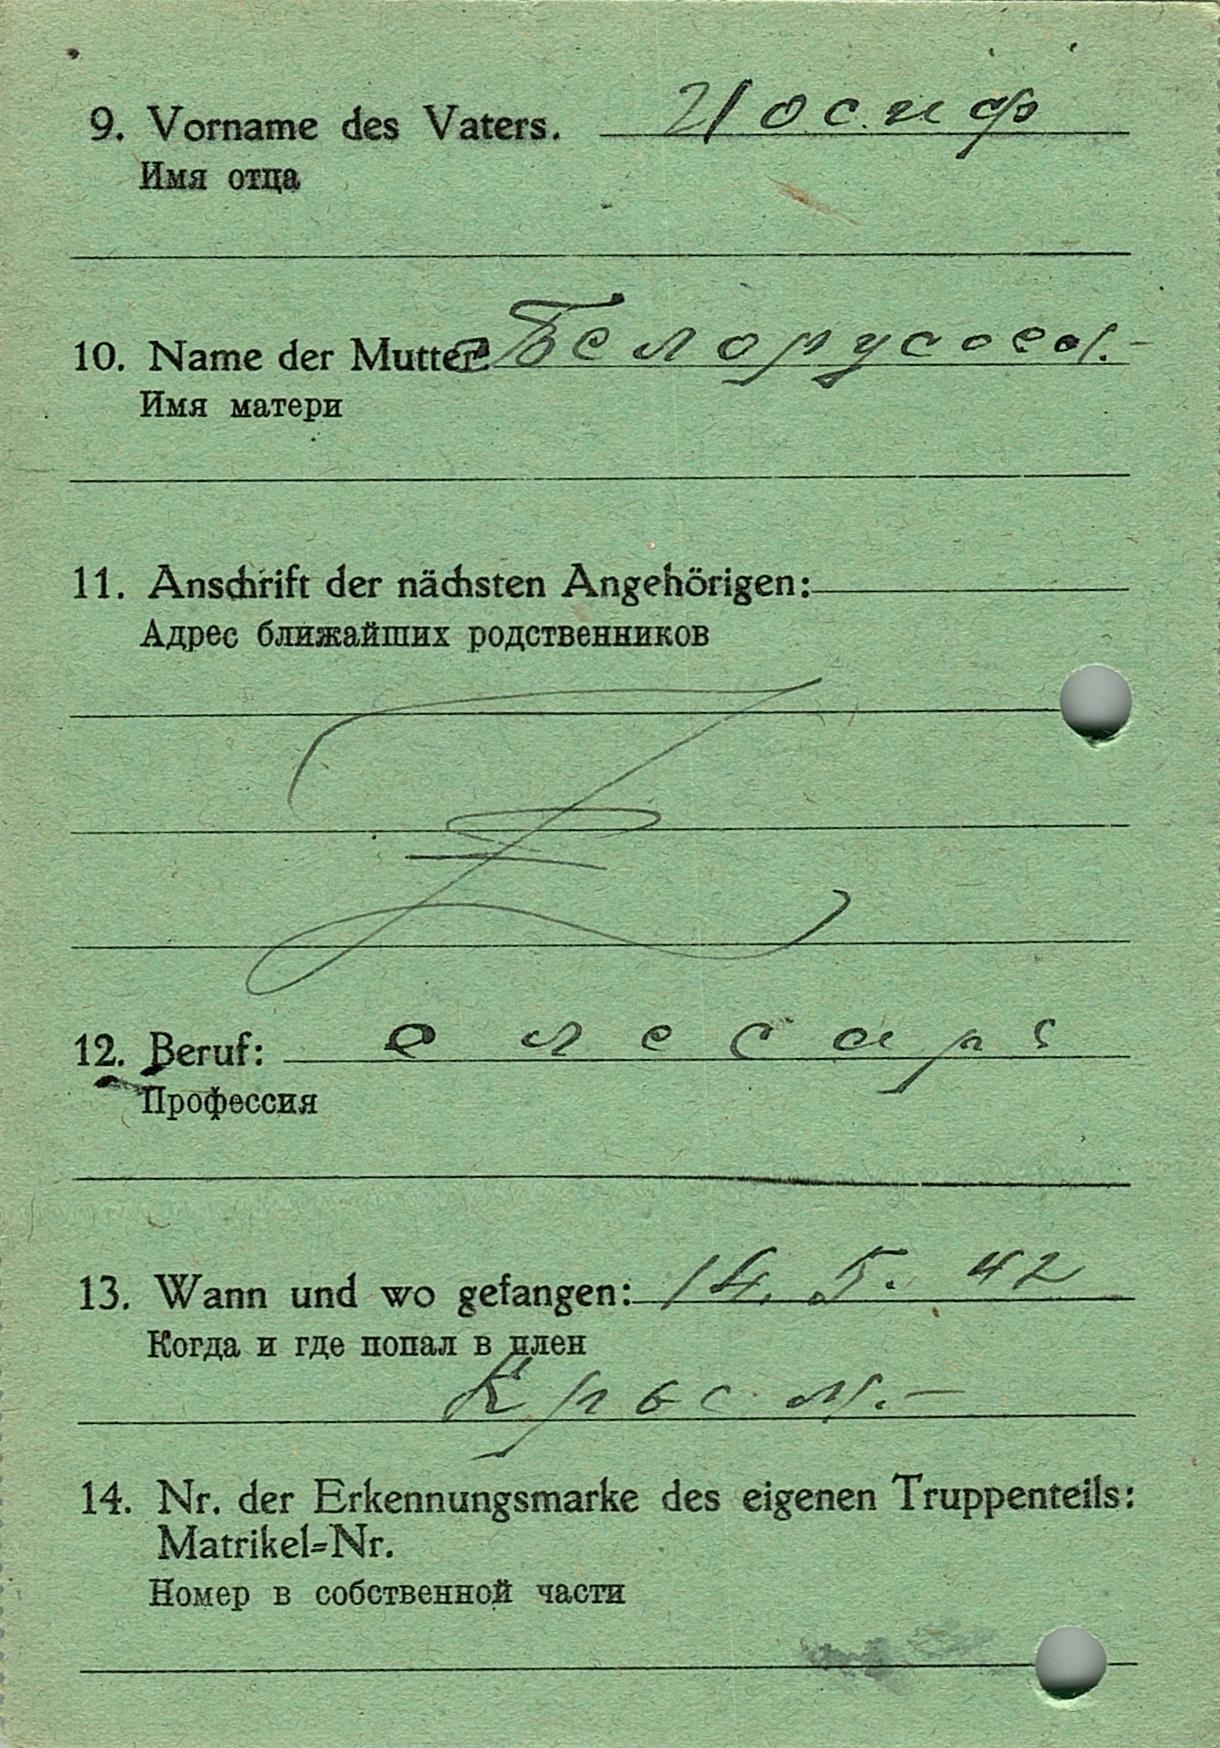 9. Vorname des Vaters. Иосиф
Имя отца
10. Name der Mutter.
Имя матери
11. Anschrift der nächsten Angehörigen:
Адрес ближайших родственников
12. Beruf: слесарь
Профессия
13. Wann und wo gefangen: 14. 5. 42
Когда и где попал в плен
14. Nr. der Erkennungsmarke des eigenen Truppenteils:
Matrikel-Nr.
Номер в собственной части